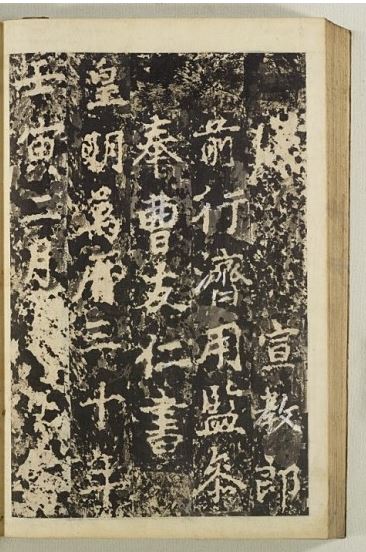 宣教郎
前行濟用監參
奉曹友仁書
皇明萬曆三十年
壬寅二月